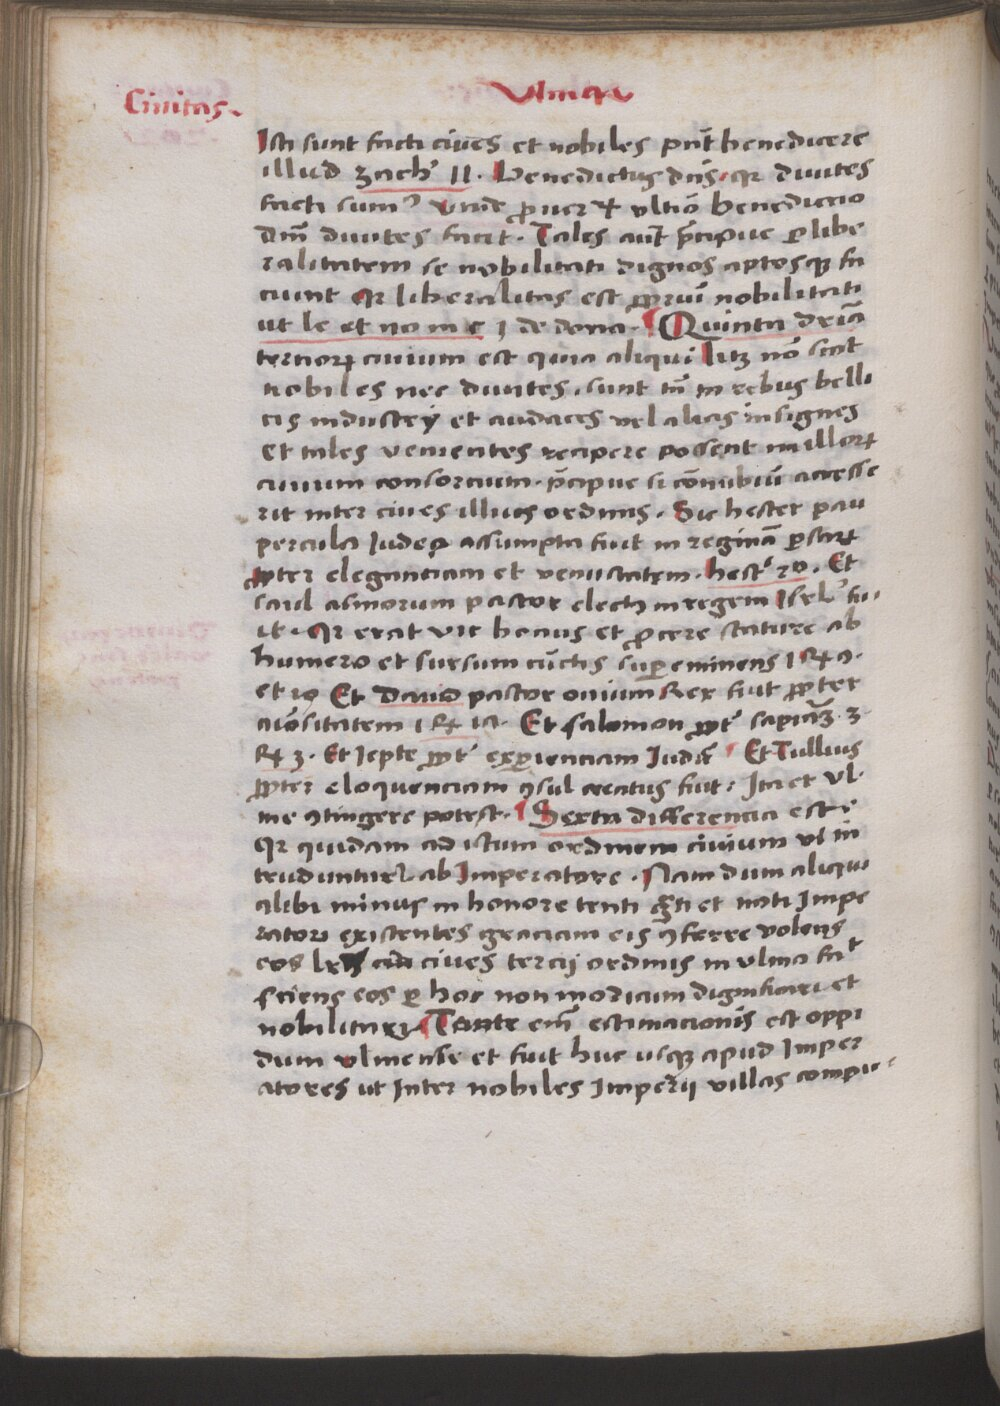 Ciuitas
Vlmen
Isti sunt facti ciues et nobiles pn̄t benedicere
illud zach' 11. Benedictus dn̄s qr diuites
facti sum' vnde ꝓuer ultiō benediccio
dn̄i diuites facit. Tales aut p̄cipue ꝑ libe
ralitatem se nobilitati dignos aptosqꝫ fa
ciunt qr liberalitas est ꝓpriū nobilitati
ut le et no in c j de dona. Quinta dr̄ia
terciorꝝ ciuium est quia aliqui licꝫ nō sint
nobiles nec diuites, sunt tn̄ in rebus belli
cis industrij et audaces vel alias insignes
et tales venientes recipere possent in illorꝝ
ciuium consorcium. p̄cipue si cōnubiū accesse
rit inter ciues illius ordinis. Sic hester pau
percula Iudea assumpta fuit in reginā
ꝓpter eleganciam et venustatem. hest' 2o. Et
saul asinorum pastor electꝰ in regem Isrl' fu
it. qr erat vir bonus et ꝓcere stature ab
humero et sursum cūctis suꝑeminens 1 R 9.
et 10 Et Dauid pastor ouium Rex fuit ꝓpter
aiōsitatem 1 R 17. Et salomon ꝓpt' sapiāꝫ. 3.
R 3. Et Iepte ꝓpt' exꝑienciam Iudic̄ Et Tullius
ꝓpter eloquenciam ꝯsul creatus fuit. Ita et Vl
me ꝯtingere potest. Sexta differencia est
qr quidam ad istum ordinem ciuium vl in
truduntur ab Imperatore. Nam dum aliqui
alibi minus in honore tenti et noti Impe
ratori existentes graciam eis ꝯferre volens
eos ciues tercij ordinis in vlma fa't
sciens eos ꝑ hoc non modicum dignificari et
nobilitari. Tante em̄ estimacionis est oppi
dum vlmense et fuit huc usqꝫ apud Imper
atores ut Inter nobiles Imperij villas compu